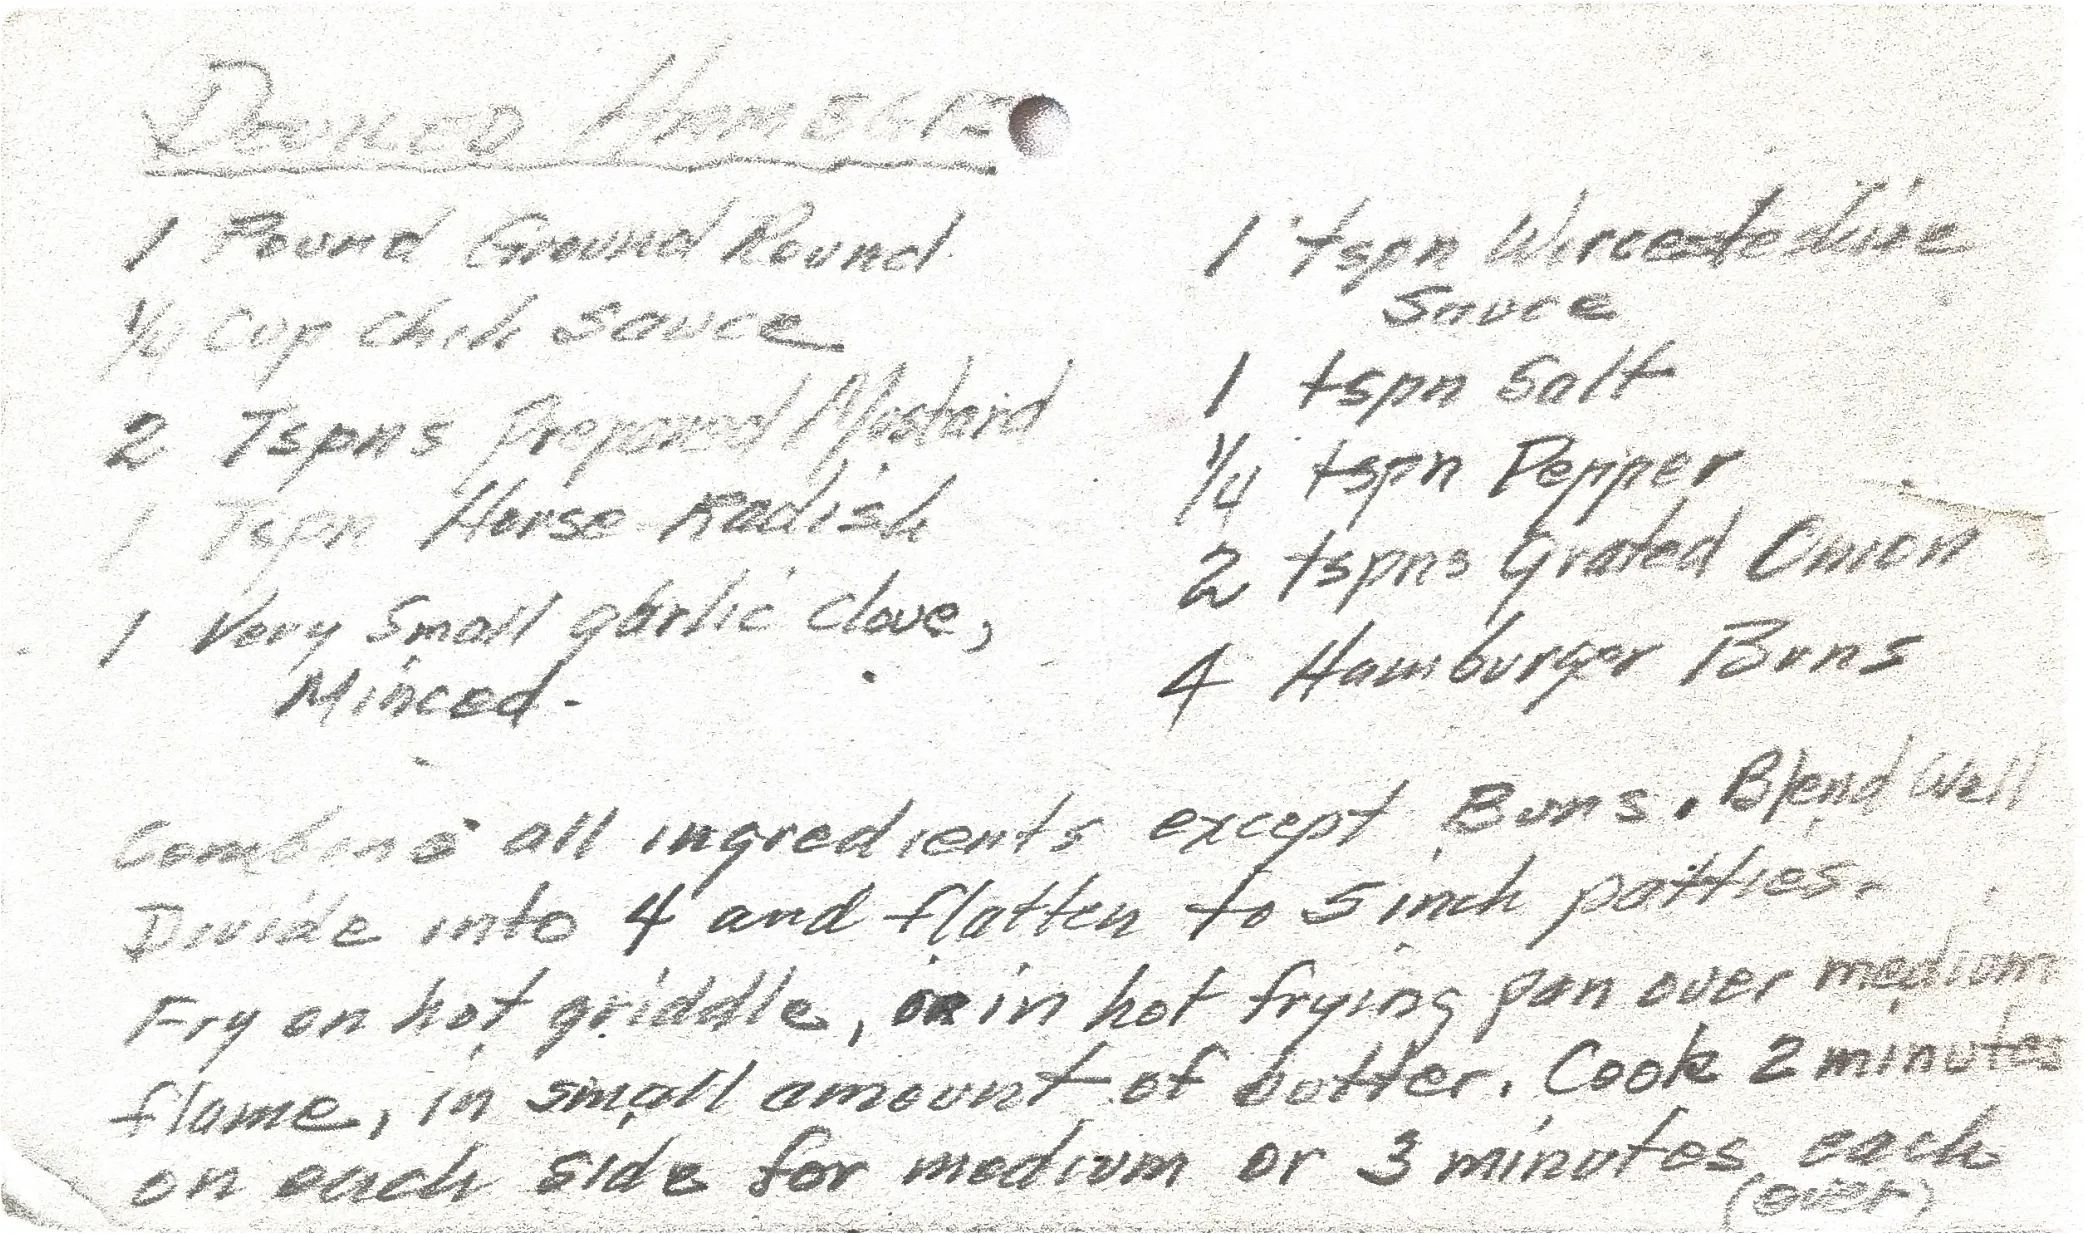 Deviled
1 Pound Ground Round
1/4 Cup Chili Sauce
2 Tspns Prepared Mustard
1 Tspn Horse Radish
1 Very Small garlic clove,
Minced.
1 tspn
Sauce
1 tspn Salt
1/4 tspn Pepper
2 tspns Grated Onion
4 Hamburger Buns
Combine all ingredients except Buns. Blend Well
Divide into 4 and flatten to 5 inch patties.
Fry on hot griddle, or in hot frying pan over medium
flame, in small amount of butter. Cook 2 minutes
on each side for medium or 3 minutes each
(over)